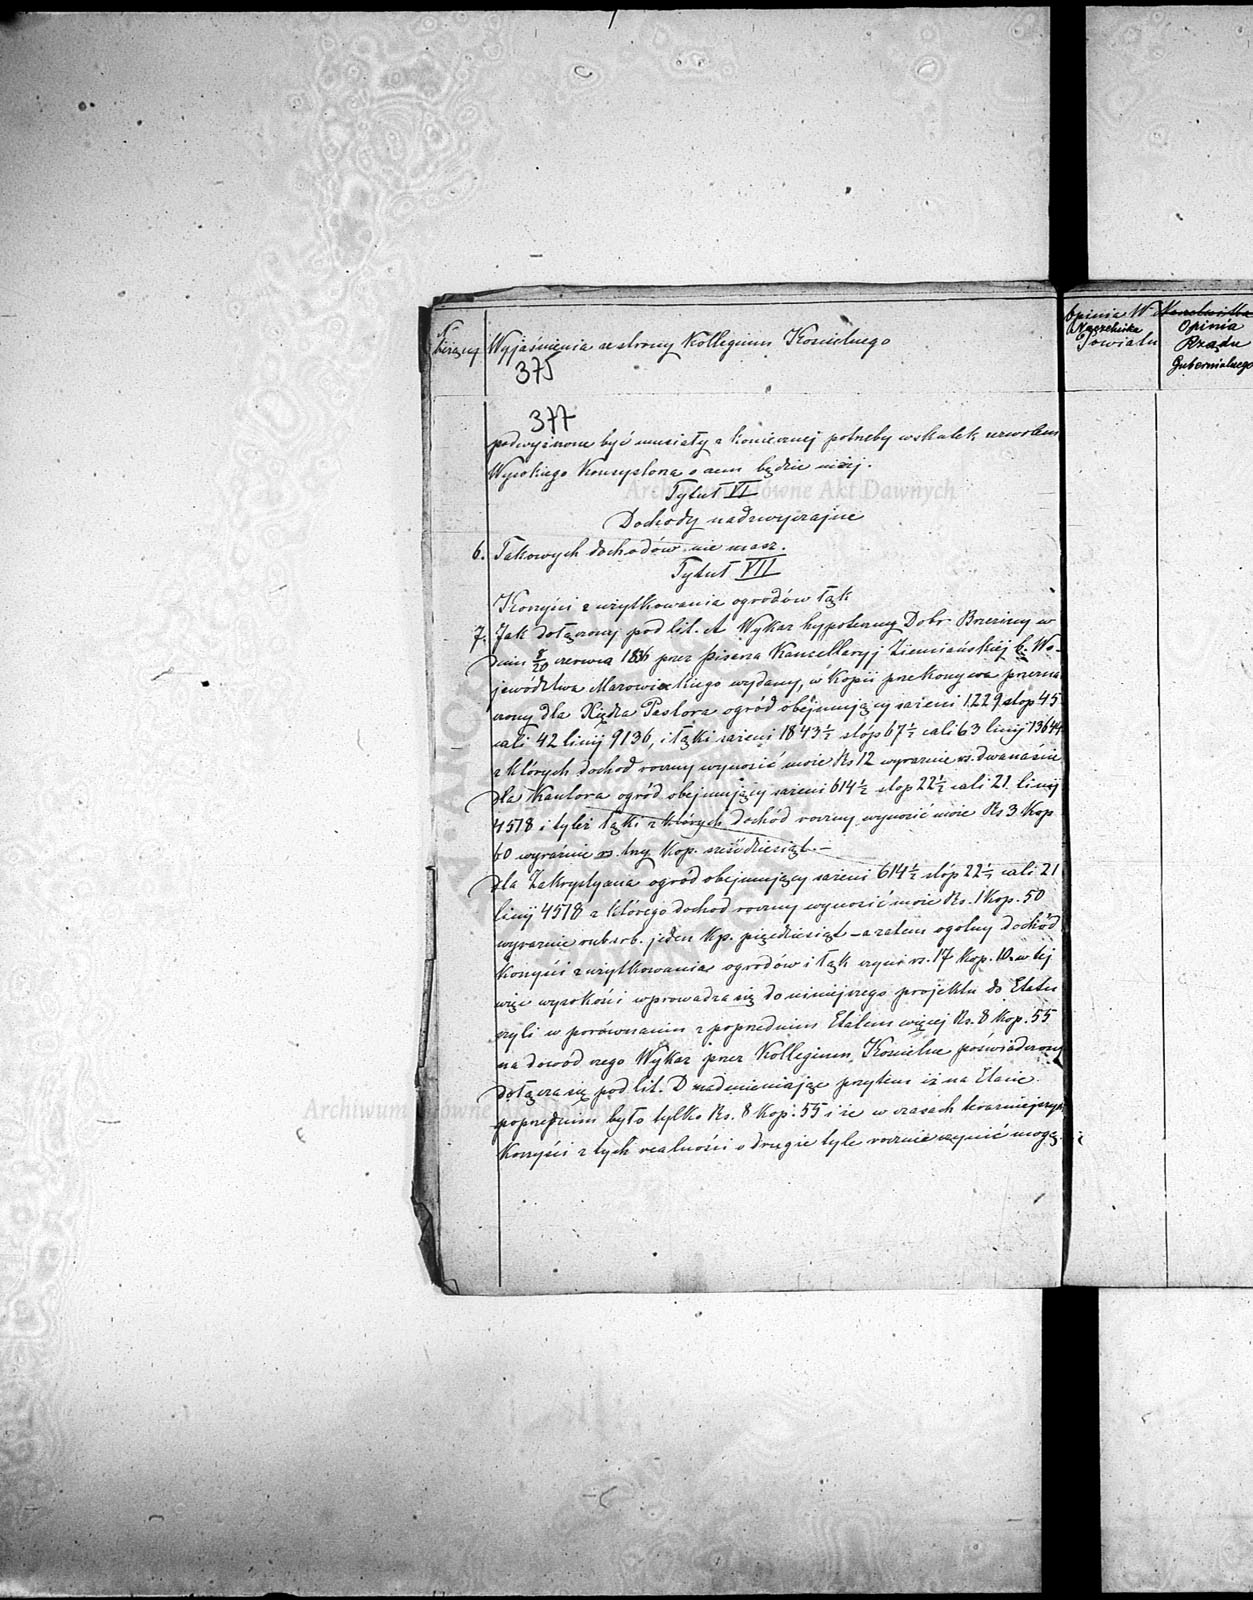 N bieżący
Wyjaśnienia ze strony Kollegium Kościelnego
375
377
podwyższone być musiały z koniecznej potrzeby wskutek zezwolenia
Wysokiego Konsystorza o czem będzie niżej.
Tytuł VI
Dochody nadzwyczajne
6. Takowych dochodów nie masz.
Tytuł VII
Korzyści z użytkowania ogrodów łąk
7. Jak dołączony pod lit. A Wykaz hypoteczny Dobr Brzeziny w
dniu 8/20 czerwca 1836 przez Pisarza Kancellaryj Ziemiańskiej b. Wo-
jewództwa Mazowieckiego wydany, w Kopii przekonywa przezna
czony dla Xiędza Pastora ogród obejmujący sażeni 1229 stop 45
cali 42 linij 9136, i łąki sażeni 1843½ stóp 67½ cali 63 linij 13644
z których dochod roczny wynosić może Rs 12 wyraźnie rs. dwanaście
dla Kantora ogród obejmujący sażeni 614½ stop 22½ cali 21 linij
4578 i tyleż łąki z których dochód roczny wynosić może Rs 3 Kop
60 wyraźnie rs. trzy Kop. sześćdziesiąt. —
dla Zakrystyana ogród obejmujący sażeni 614½ stóp 22½ cali 21
linij 4578 z którego dochod roczny wynosić może Rs. 1 Kop. 50
wyraźnie rub. srb. jeden Kp. pięćdziesiąt – a zatem ogolny dochód
Korzyści z użytkowania ogrodów i łąk czyni rs. 17 Kop. 10. w tej
więc wysokości wprowadza się do niniejszego projektu do Etatu
czyli w porównaniu z poprzednim Etatem więcej Rs. 8 Kop. 55
na dowód czego Wykaz przez Kollegium Kościelne poświadczony
dołącza się pod lit. D nadmieniając przytem iż na Etacie
poprzednim było tylko Rs. 8 Kop. 55 i że w czasach teraźniejszych
Korzyści z tych realności o drugie tyle rocznie czynić mogą.
Opinia W Naczelnika Powiatu
Opinia
Rządu
Gubernialnego
Archiwum Główne Akt Dawnych
Archiwum Główne Akt Dawnych